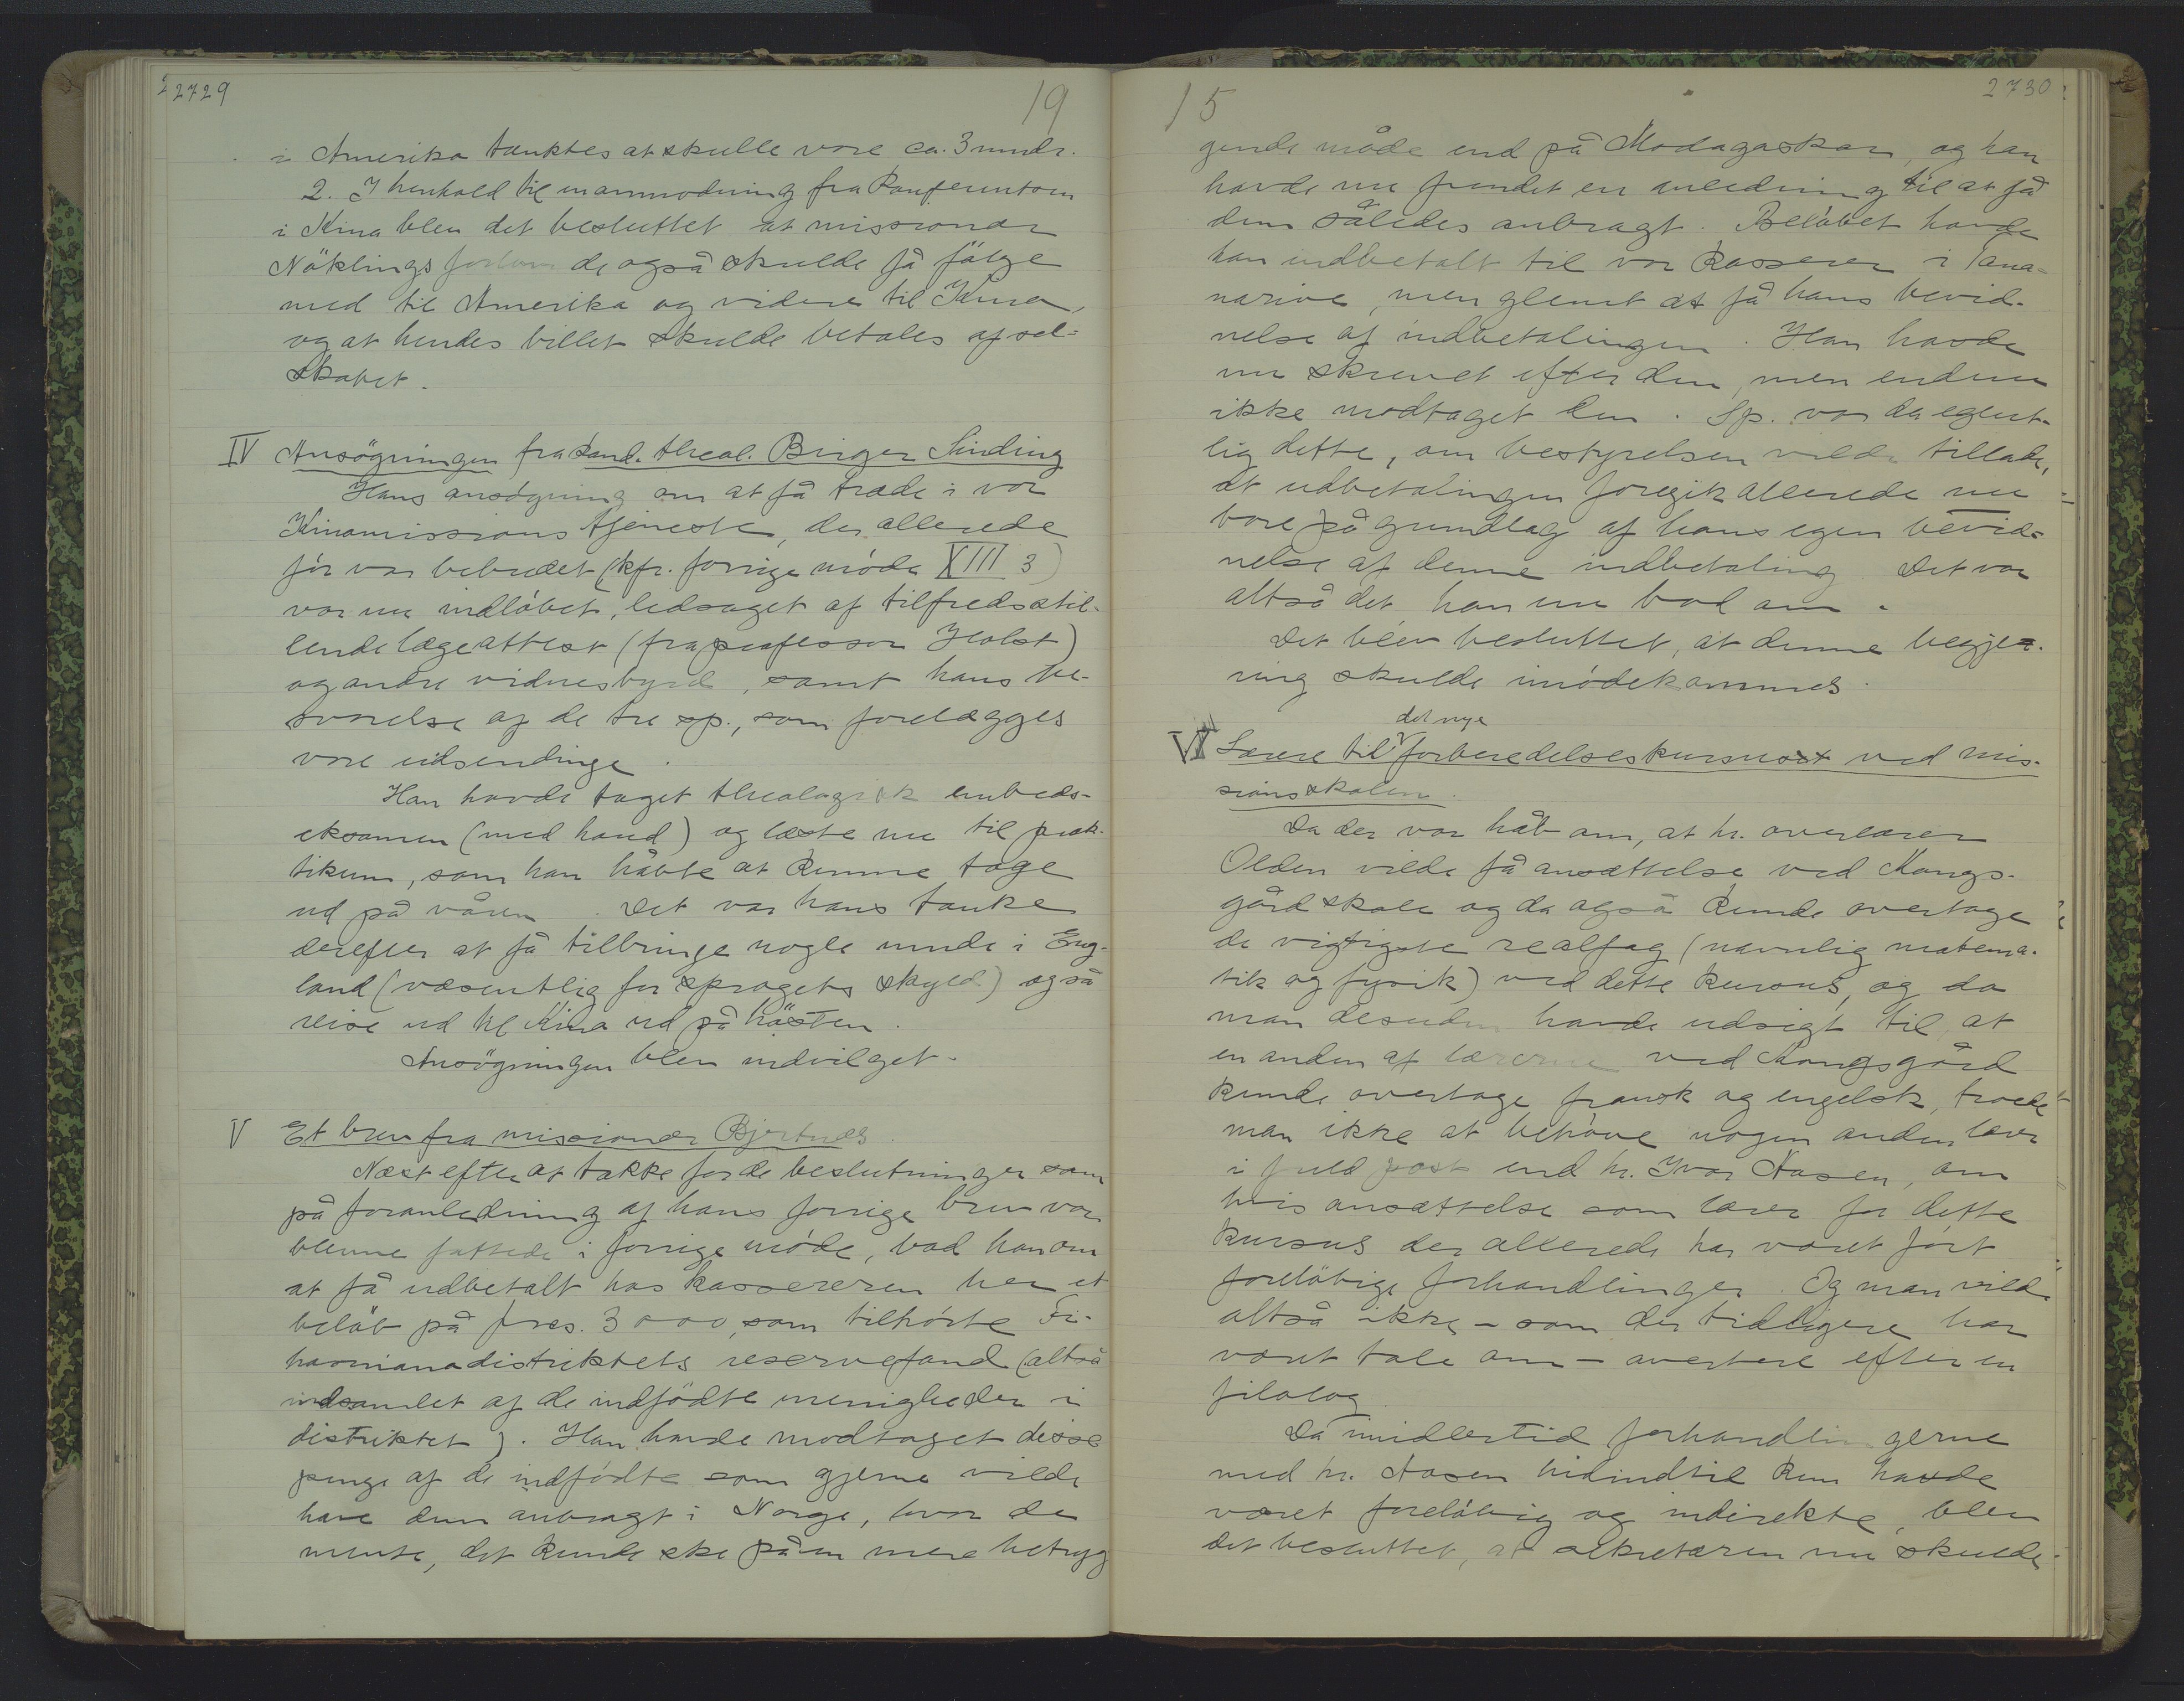 2729
19
i Amerika tænktes at skulle vare ca. 3 mndr.
2. I henhold til en anmodning fra Konferentsen
i Kina blev det besluttet at missionær
Nöklings forlovede også skulde få följe
med til Amerika og videre til Kina,
og at hendes billet skulde betales af sel-
skabet.
IV Ansögningen fra Cand. theol. Birger Sinding
Hans ansögning om at få træde i vor
Kinamissions tjeneste, der allerede
för var bebudet (kfr. forrige möde XIII 3)
var nu indløbet, ledsaget af tilfredsstil-
lende lægeattest (fra professor Holst)
og andre vidnesbyrd, samt hans be-
svarelse af de tre sp., som forelægges
vore udsendinge.
Han havde taget theologisk embeds-
eksamen (med haud) og læste nu til prak-
tikum, som han håbte at kunne tage
ud på våren. Det var hans tanke
derefter at få tilbringe nogle mndr i Eng-
land (væsentlig for sprogets skyld) og så
reise ud til Kina ud på hösten.
Ansögningen blev indvilget.
V Et brev fra missionær Bjertnæs.
Næst efter at takke for de beslutninger som
på foranledning af hans forrige brev var
blevne fattede i forrige möde, bad han om
at få udbetalt hos kassereren her et
belöb på frcs. 3000, som tilhörte Fi-
havnanadistriktets reservefond (altså
indsamlet af de indfödte menigheder i
distriktet). Han havde modtaget disse
penge af de indfödte som gjerne vilde
have dem anbragt i Norge, hvor de
mente, det kunde ske på en mere betryg
15
2730
gende måde end på Madagaskar, og han
havde nu fundet en anledning til at få
dem således anbragt. Belöbet havde
han indbetalt til vor Kasserer i Tana-
narive, men glemt at få hans bevid-
nelse af indbetalingen. Han havde
nu skrevet efter den, men endnu
ikke modtaget den. Sp. var da egent-
lig dette, om bestyrelsen vilde tillade,
at udbetalingen foregik allerede nu
bare på grundlag af hans egen bevid-
nelse af denne indbetaling. Det var
altså det han nu bad om.
Det blev besluttet, at denne begjæ-
ring skulde imödekommes.
det nye
VI Lærere til forberedelseskursuset ved mis-
sionsskolen.
Da der var håb om, at hr. overlærer
Olden vilde få ansættelse ved Kongs-
gård skole og da også kunde overtage
de vigtigste realfag (navnlig matema-
tik og fysik) ved dette kursus, og da
man desuden havde udsigt til at
en anden af lærerne ved Kongsgård
kunde overtage fransk og engelsk, troede
man ikke at behöve nogen anden lærer
i fuld post end hr. Ivar Aasen, om
hvis ansættelse som lærer for dette
kursus der allerede har været fört
forelöbige forhandlinger. Og man vilde
altså ikke – som der tidligere har
været tale om – avertere efter en
filolog.
Da imidlertid forhandlingerne
med hr. Aasen hidindtil kun havde
været forelöbig og indirekte, blev
det besluttet, at sekretæren nu skulde